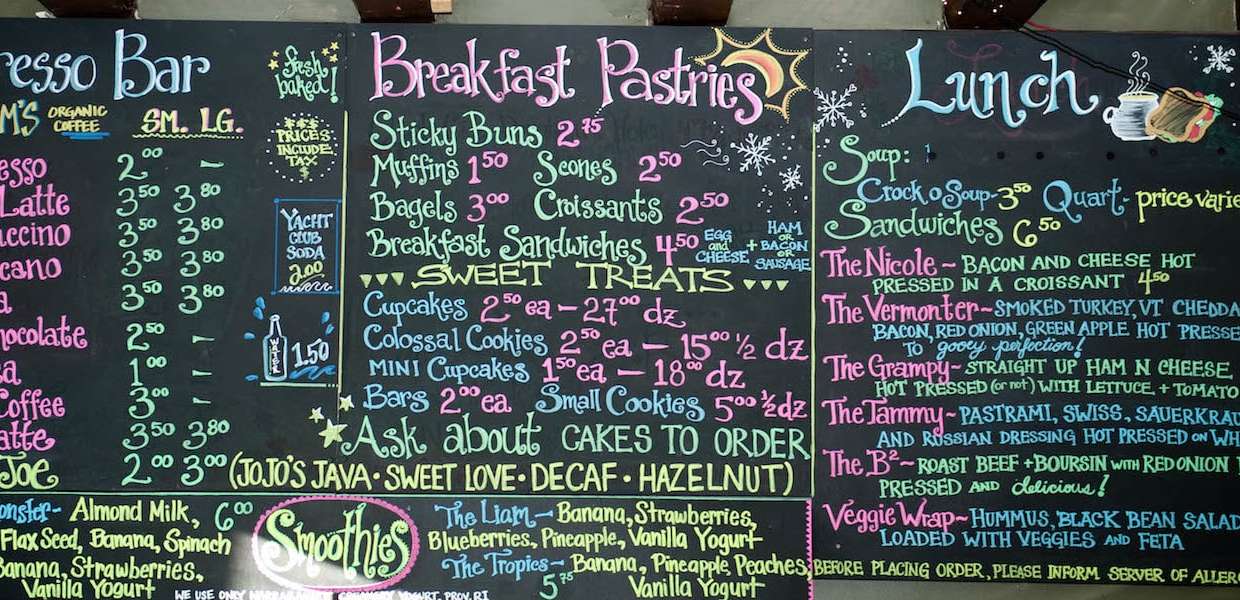 resso Bar
M'S ORGANIC COFFEE SM. LG.
esso 2.00 –
Latte 3.50 3.80
ccino 3.50 3.80
cano 3.50 3.80
a 3.50 3.80
hocolate 2.50 –
ea 1.00 –
Coffee 3.00 –
atte 3.50 3.80
Joe 2.00 3.00 (JOJO'S JAVA • SWEET LOVE • DECAF • HAZELNUT)
fresh
baked!
$$$
PRICES
INCLUDE
TAX
$
YACHT
CLUB
SODA
2.00
WATER 1.50
Breakfast Pastries
Sticky Buns 2.75
Muffins 1.50 Scones 2.50
Bagels 3.00 Croissants 2.50
Breakfast Sandwiches 4.50 EGG and CHEESE + HAM OR BACON OR SAUSAGE
SWEET TREATS
Cupcakes 2.50 ea – 27.00 dz
Colossal Cookies 2.50 ea – 15.00 1/2 dz
MINI Cupcakes 1.50 ea – 18.00 dz
Bars 2.00 ea Small Cookies 5.00 1/2 dz
Ask about CAKES TO ORDER
Lunch
Soup:
Crock o Soup - 3.50 Quart - price varie
Sandwiches 6.50
The Nicole ~ BACON AND CHEESE HOT
PRESSED IN A CROISSANT 4.50
The Vermonter ~ SMOKED TURKEY, VT CHEDDA
BACON, RED ONION, GREEN APPLE HOT PRESSE
TO gooey perfection!
The Grampy ~ STRAIGHT UP HAM N CHEESE,
HOT PRESSED (or not) WITH LETTUCE, + TOMATO
The Tammy ~ PASTRAMI, SWISS, SAUERKRAU
AND RUSSIAN DRESSING HOT PRESSED ON WH
The B² ~ ROAST BEEF + BOURSIN WITH RED ONION
PRESSED AND delicious!
Veggie Wrap ~ HUMMUS, BLACK BEAN SALAD
LOADED WITH VEGGIES AND FETA
BEFORE PLACING ORDER, PLEASE INFORM SERVER OF ALLER
Smoothies
onster - Almond Milk, 6.00
Flax Seed, Banana, Spinach
Banana, Strawberries,
Vanilla Yogurt
The Liam – Banana, Strawberries,
Blueberries, Pineapple, Vanilla Yogurt
The Tropics - Banana, Pineapple, Peaches,
5.75 Vanilla Yogurt
WE USE ONLY NARRAGANSETT CREAMERY YOGURT, PROV. RI